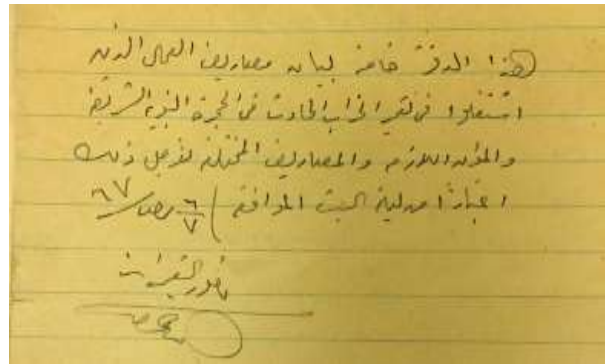 (هذا الدفتر خاص لبيان مصاريف العمال الذين
اشتغلوا في تعمير الخراب الحادث في الحجرة النبوية الشريفة
والمؤن اللازمة والمصاريف المختلفة لأجل ذلك
اعتباراً من ليلة السبت الموافق ) ٦/٧
مأمور التعميرات